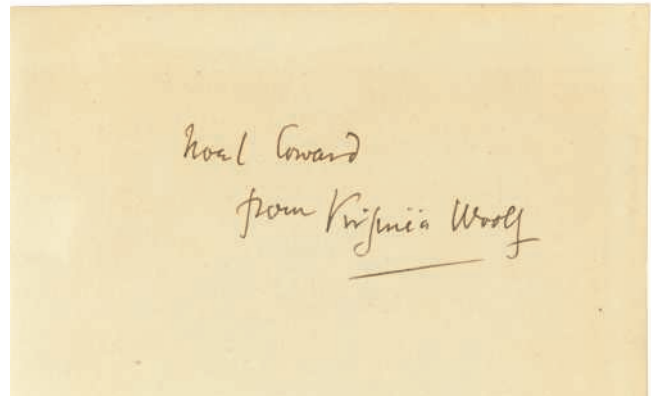 Noel Coward
from Virginia Woolf